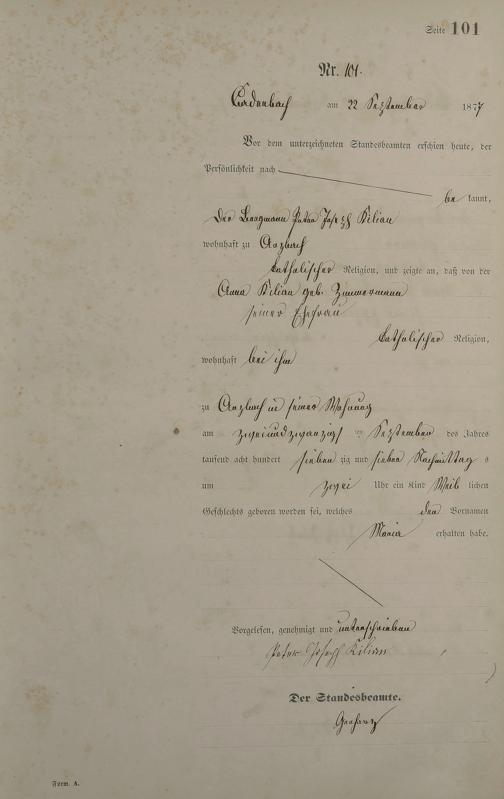 Seite 101
Nr. 101.
am 22 September 1877
Vor dem unterzeichneten Standesbeamten erschien heute, der
Persönlichkeit nach
be kannt,
Der Bergmann Peter Joseph Kilian
wohnhaft zu Anzbach
katholischer Religion, und zeigte an, daß von der
Anna Kilian geb. Zimmermann
seiner Ehefrau
katholischer Religion,
wohnhaft bei ihm
zu Anzbach in seiner Wohnung
am zweiundzwanzigsten September des Jahres
tausend acht hundert sieben zig und sieben Nachmittag s
um zwei Uhr ein Kind Weib lichen
Geschlechts geboren worden sei, welches den Vornamen
Maria erhalten habe.
Vorgelesen, genehmigt und unterschrieben
Peter Joseph Kilian
Der Standesbeamte.
Form. A.